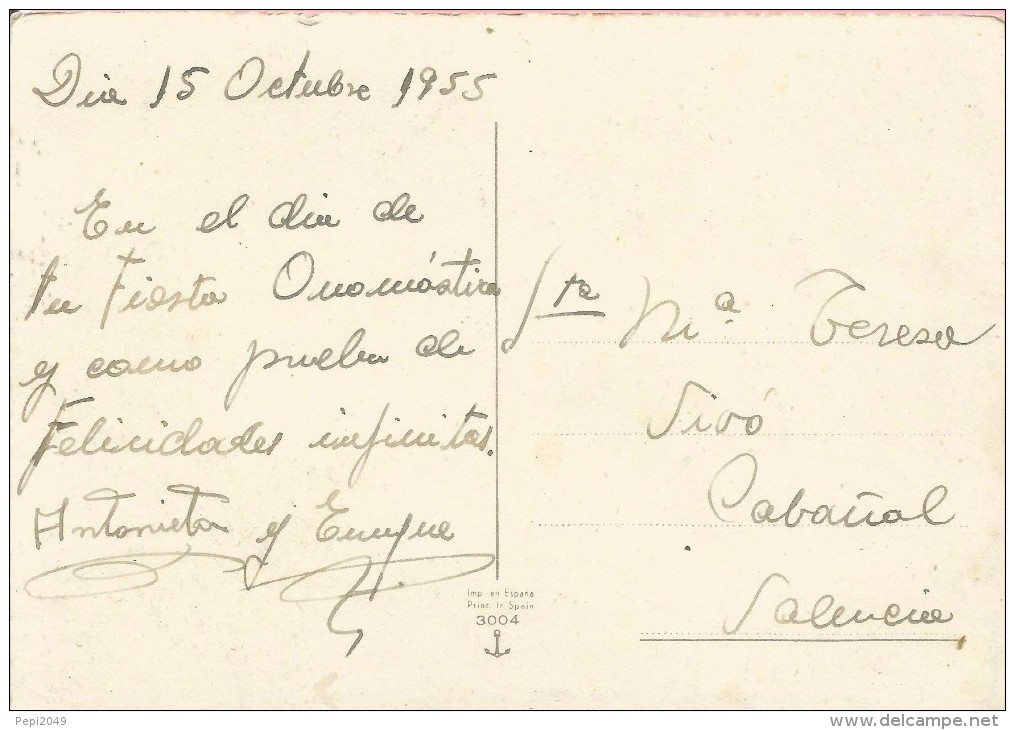 Dia 15 Octubre 1955
En el dia de
tu Fiesta Onomástica
y como prueba de
Felicidades infinitas.
Antonieta y Enrique
Sta Mª Teresa
Vivó
Cabañal
Valencia
Imp. en España
Print. in Spain
3004
Pepi2049
www.delcampe.net